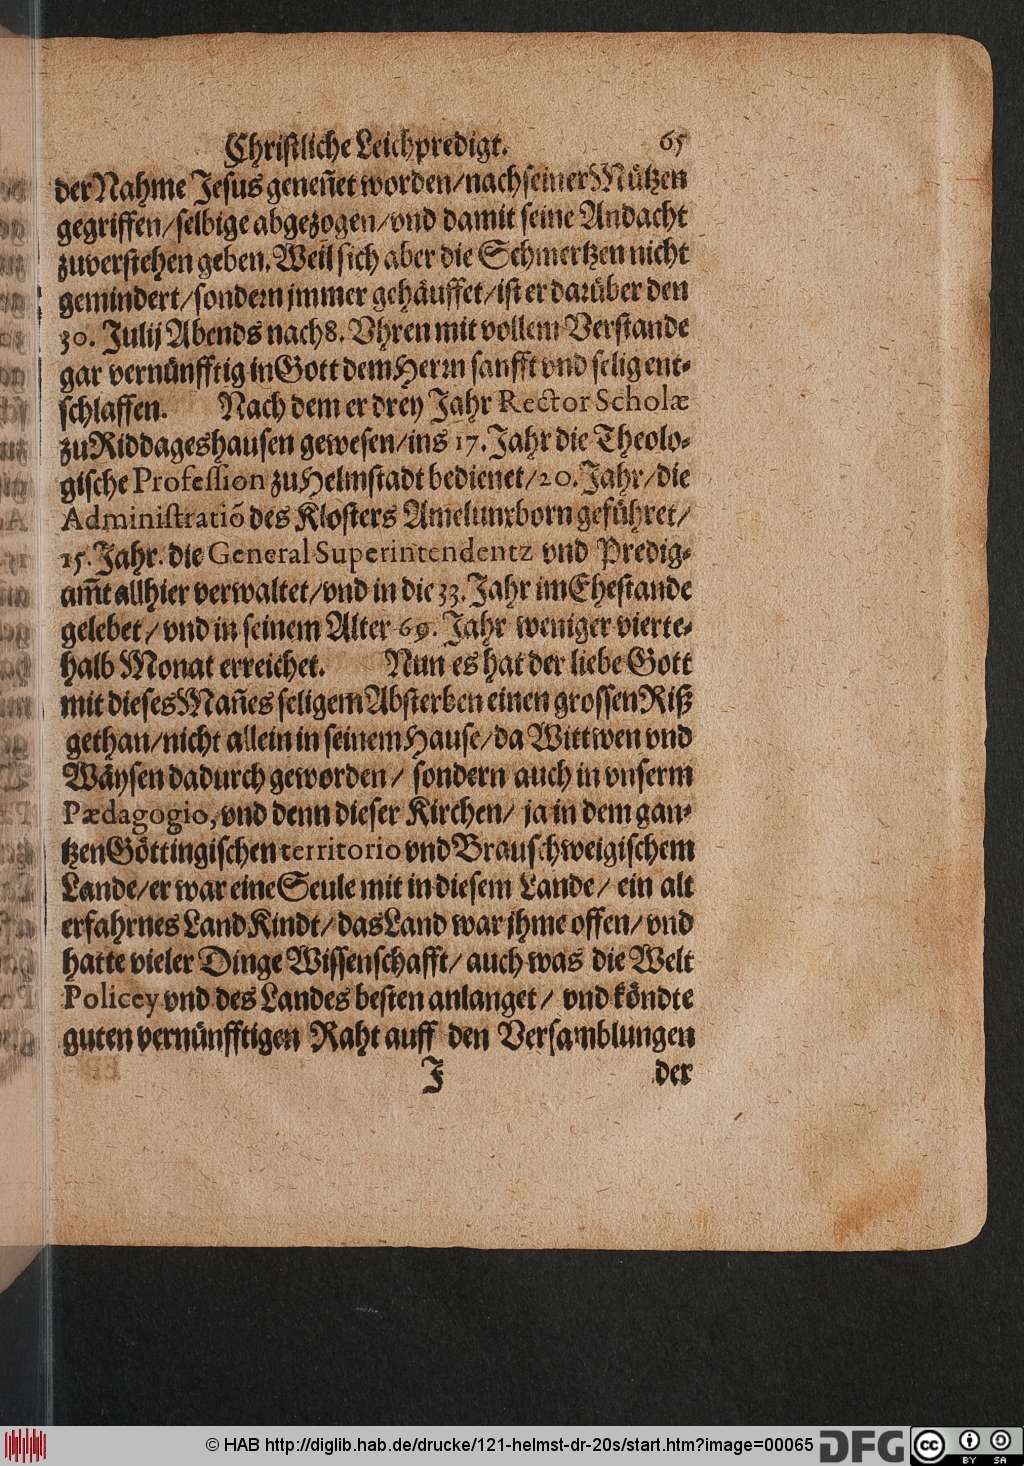 Christliche Leichpredigt. 65
der Nahme Jesus geneñet worden/ nach seiner Mützen
gegriffen/ selbige abgezogen/ vnd damit seine Andacht
zuverstehen geben. Weil sich aber die Schmertzen nicht
gemindert/ sondern jmmer gehäuffet/ ist er darüber den
30. Julij Abends nach 8. Vhren mit vollem Verstande
gar vernünfftig in Gott dem Herrn sanfft vnd selig ent-
schlaffen. Nach dem er drey Jahr Rector Scholæ
zu Riddageshausen gewesen/ ins 17. Jahr die Theolo-
gische Profession zu Helmstadt bedienet/ 20. Jahr/ die
Administratiõ des Klosters Amelunxborn geführet/
15. Jahr. die General Superintendentz vnd Predig-
am̃t allhier verwaltet/ vnd in die 33. Jahr im Ehestande
gelebet/ vnd in seinem Alter 69. Jahr weniger vierte-
halb Monat erreichet. Nun es hat der liebe Gott
mit dieses Mañes seligem Absterben einen grossen Riß
gethan/ nicht allein in seinem Hause/ da Wittwen vnd
Wäysen dadurch geworden/ sondern auch in vnserm
Pædagogio, vnd denn dieser Kirchen/ ja in dem gan-
tzen Göttingischen territorio vnd Brauschweigischem
Lande/ er war eine Seule mit in diesem Lande/ ein alt
erfahrnes Land Kindt/ das Land war jhme offen/ vnd
hatte vieler Dinge Wissenschafft/ auch was die Welt
Policey vnd des Landes besten anlanget/ vnd köndte
guten vernünfftigen Raht auff den Versamblungen
J der
© HAB http://diglib.hab.de/drucke/121-helmst-dr-20s/start.htm?image=00065 DFG cc BY SA